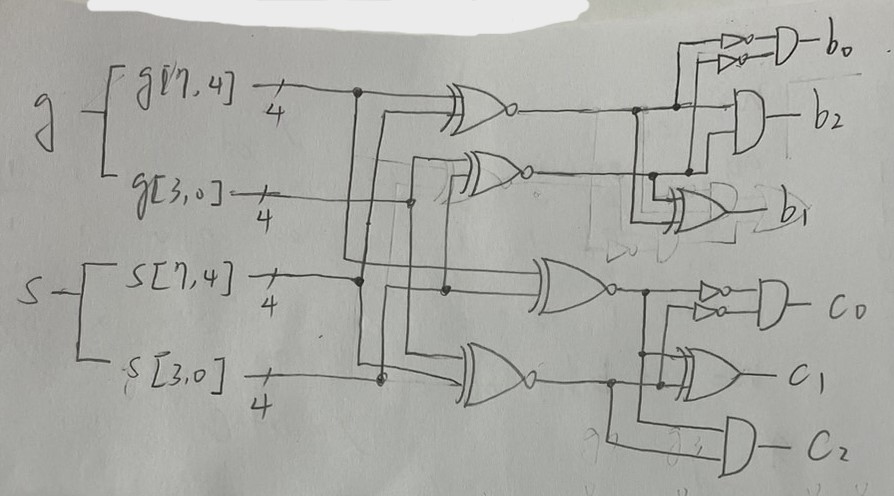 g
g[7,4]
4
g[3,0]
4
S
S[7,4]
4
S[3,0]
4
b0
b2
b1
C0
C1
C2